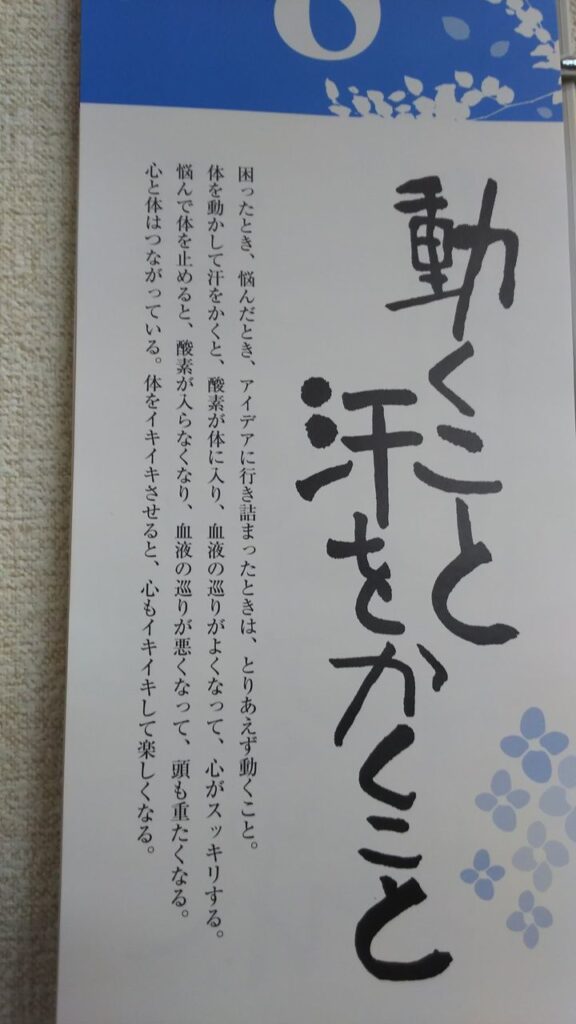 動くこと
汗をかくこと
困ったとき、悩んだとき、アイデアに行き詰まったときは、とりあえず動くこと。
体を動かして汗をかくと、酸素が体に入り、血液の巡りがよくなって、心がスッキリする。
悩んで体を止めると、酸素が入らなくなり、血液の巡りが悪くなって、頭も重たくなる。
心と体はつながっている。体をイキイキさせると、心もイキイキして楽しくなる。